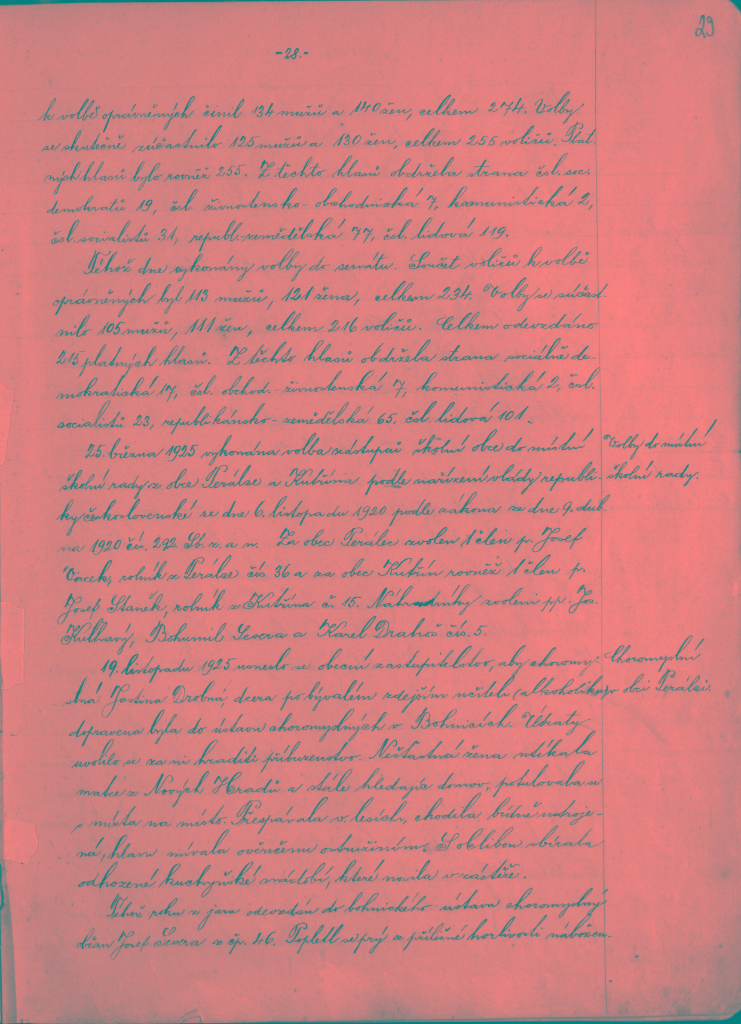 29
-28.-
k volbě oprávněných činil 134 mužů a 140 žen, celkem 274. Volby
se skutečně zúčastnilo 125 mužů a 130 žen, celkem 255 voličů. Plat-
ných hlasů bylo rovněž 255. Z těchto hlasů obdržela strana čsl. soc.
demokratů 19, čsl. živnostensko-obchodnická 7, komunistická 2,
čsl. socialistů 31, republ.-zemědělská 77, čsl. lidová 119.
Téhož dne vykonány volby do senátu. Součet voličů k volbě
oprávněných byl 113 mužů, 121 žena, celkem 234. Volby se súčast-
nilo 105 mužů, 111 žen, celkem 216 voličů. Celkem odevzdáno
215 platných hlasů. Z těchto hlasů obdržela strana sociálně de-
mokratická 17, čsl. obchod.-živnostenská 7, komunistická 2, čsl.
socialistů 23, republikánsko-zemědělská 65, čsl. lidová 101.
25. března 1925 vykonána volba zástupců školní obce do místní
Volby do místní
školní rady z obce Perálec a Kutřína podle nařízení vlády republi-
školní rady.
ky československé ze dne 6. listopadu 1920 podle zákona ze dne 9. dub-
na 1920 čís. 292 Sb. z. a n. Za obec Perálec zvolen 1 člen p. Josef
Vacek, rolník z Perálce čís. 36 a za obec Kutřín rovněž 1 člen p.
Josef Staněk, rolník z Kutřína č. 15. Náhradníky zvoleni pp. Jos.
Kulhavý, Bohumil Severa a Karel Drahoš čís. 5.
19. listopadu 1925 usneslo se obecní zastupitelstvo, aby choromy-
Choromyslní
slná Justina Drobná, dcera po bývalém zdejším učiteli (alkoholiku)
v obci Perálci.
dopravena byla do ústavu choromyslných v Bohnicích. Útraty
uvolilo se za ni hraditi příbuzenstvo. Nešťastná žena utíkala
matce z Nových Hradů a stále hledajíc domov, potulovala se
z místa na místo. Přespávala v lesích, chodila bídně ustroje-
ná, hlavu mívala ověnčenu S oblibou sbírala
odhozené kuchyňské nádobí, které nosila v zástěře.
Téhož roku z jara odevzdán do bohnického ústavu choromyslný
občan Josef Severa z čp. 46. Popletl se prý z přílišné horlivosti nábožen-